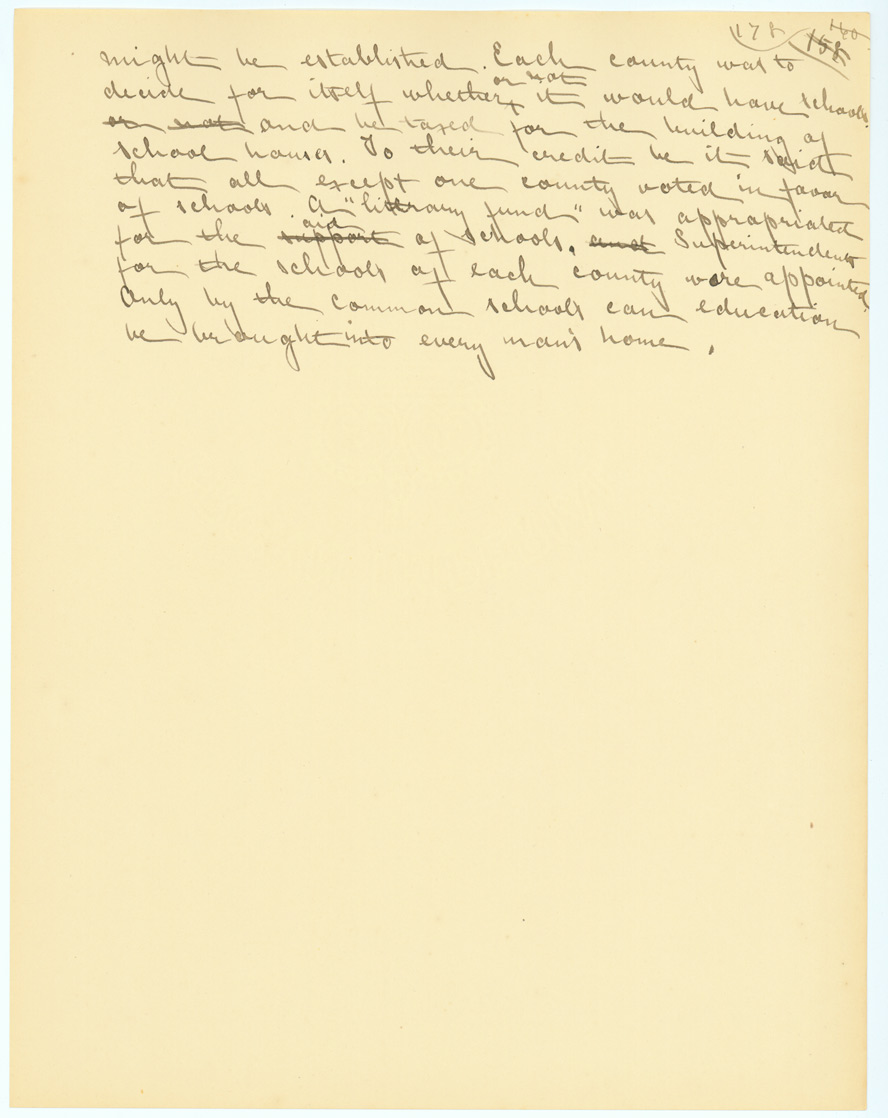 178 158 180
might be established. Each county was to
decide for itself whether or not it would have schools.
or not and be taxed for the building of
school houses. To their credit be it said
that all except one county voted in favor
of schools. A "literary fund" was appropriated
for the support aid of schools. and Superintendents
for the schools of each county were appointed.
Only by the common schools can education
be brought into every man's home.